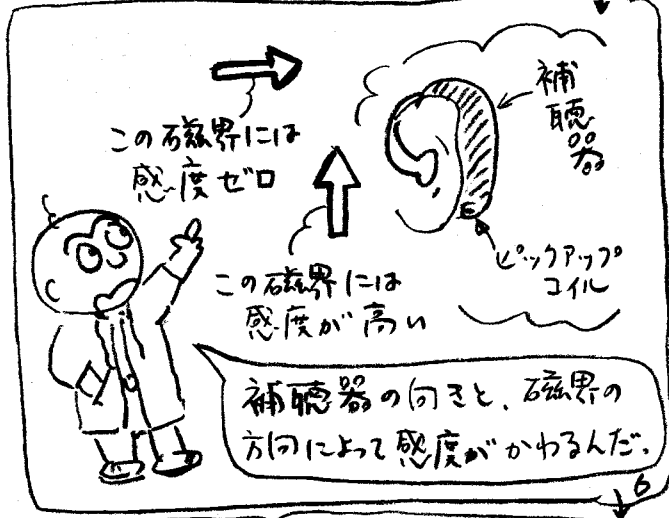 この磁界には
感度ゼロ
補聴器
ピックアップ
コイル
この磁界には
感度が高い
補聴器の向きと、磁界の
方向によって感度がかわるんだ。
6